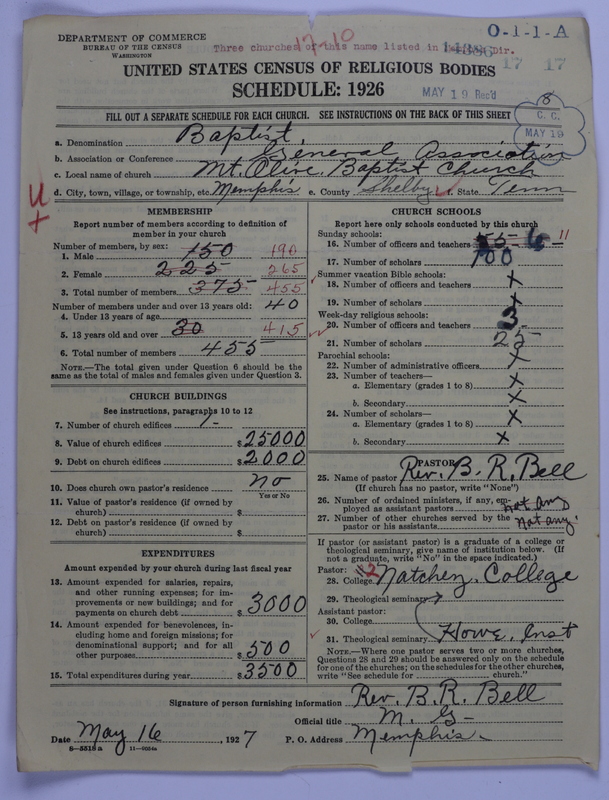 O-1-1-A
DEPARTMENT OF COMMERCE
BUREAU OF THE CENSUS
WASHINGTON
17-10
Three churches of this name listed in Dir.
14386
17 17
UNITED STATES CENSUS OF RELIGIOUS BODIES
SCHEDULE: 1926
MAY 19 Rec'd
8
C. C.
MAY 19
FILL OUT A SEPARATE SCHEDULE FOR EACH CHURCH. SEE INSTRUCTIONS ON THE BACK OF THIS SHEET
a. Denomination Baptist.
b. Association or Conference General Association
c. Local name of church Mt. Olive Baptist Church
d. City, town, village, or township, etc. Memphis e. County Shelby f. State Tenn
MEMBERSHIP
Report number of members according to definition of
member in your church
Number of members, by sex:
1. Male 150 190
2. Female 225 265
3. Total number of members 375 455
Number of members under and over 13 years old:
4. Under 13 years of age 40
5. 13 years old and over 30 415
6. Total number of members 455
NOTE.—The total given under Question 6 should be the
same as the total of males and females given under Question 3.
CHURCH BUILDINGS
See instructions, paragraphs 10 to 12
7. Number of church edifices 1
8. Value of church edifices $ 25000
9. Debt on church edifices $ 2000
10. Does church own pastor's residence no
Yes or No
11. Value of pastor's residence (if owned by
church) $
12. Debt on pastor's residence (if owned by
church) $
EXPENDITURES
Amount expended by your church during last fiscal year
13. Amount expended for salaries, repairs,
and other running expenses; for im-
provements or new buildings; and for
payments on church debt $ 3000
14. Amount expended for benevolences, in-
cluding home and foreign missions; for
denominational support; and for all
other purposes $ 500
15. Total expenditures during year $ 3500
CHURCH SCHOOLS
Report here only schools conducted by this church
Sunday schools:
16. Number of officers and teachers 6 11
17. Number of scholars 100
Summer vacation Bible schools:
18. Number of officers and teachers x
19. Number of scholars x
Week-day religious schools:
20. Number of officers and teachers 3
21. Number of scholars 25
Parochial schools:
22. Number of administrative officers x
23. Number of teachers—
a. Elementary (grades 1 to 8) x
b. Secondary x
24. Number of scholars—
a. Elementary (grades 1 to 8) x
b. Secondary x
PASTOR
25. Name of pastor Rev. B. R. Bell
(If church has no pastor, write "None")
26. Number of ordained ministers, if any, em-
ployed as assistant pastors not any
27. Number of other churches served by the
pastor or his assistants not any.
If pastor (or assistant pastor) is a graduate of a college or
theological seminary, give name of institution below. (If
not a graduate, write "No" in the space indicated.)
Pastor:
28. College Natchez. College
29. Theological seminary
Assistant pastor:
30. College
31. Theological seminary Howe. Inst
NOTE.—Where one pastor serves two or more churches,
Questions 28 and 29 should be answered only on the schedule
for one of the churches; on the schedules for the other churches,
write "See schedule for church."
Signature of person furnishing information Rev. B. R. Bell
Official title M. G.
Date May 16, 1927 P. O. Address Memphis.
8—5518a 11—9034a